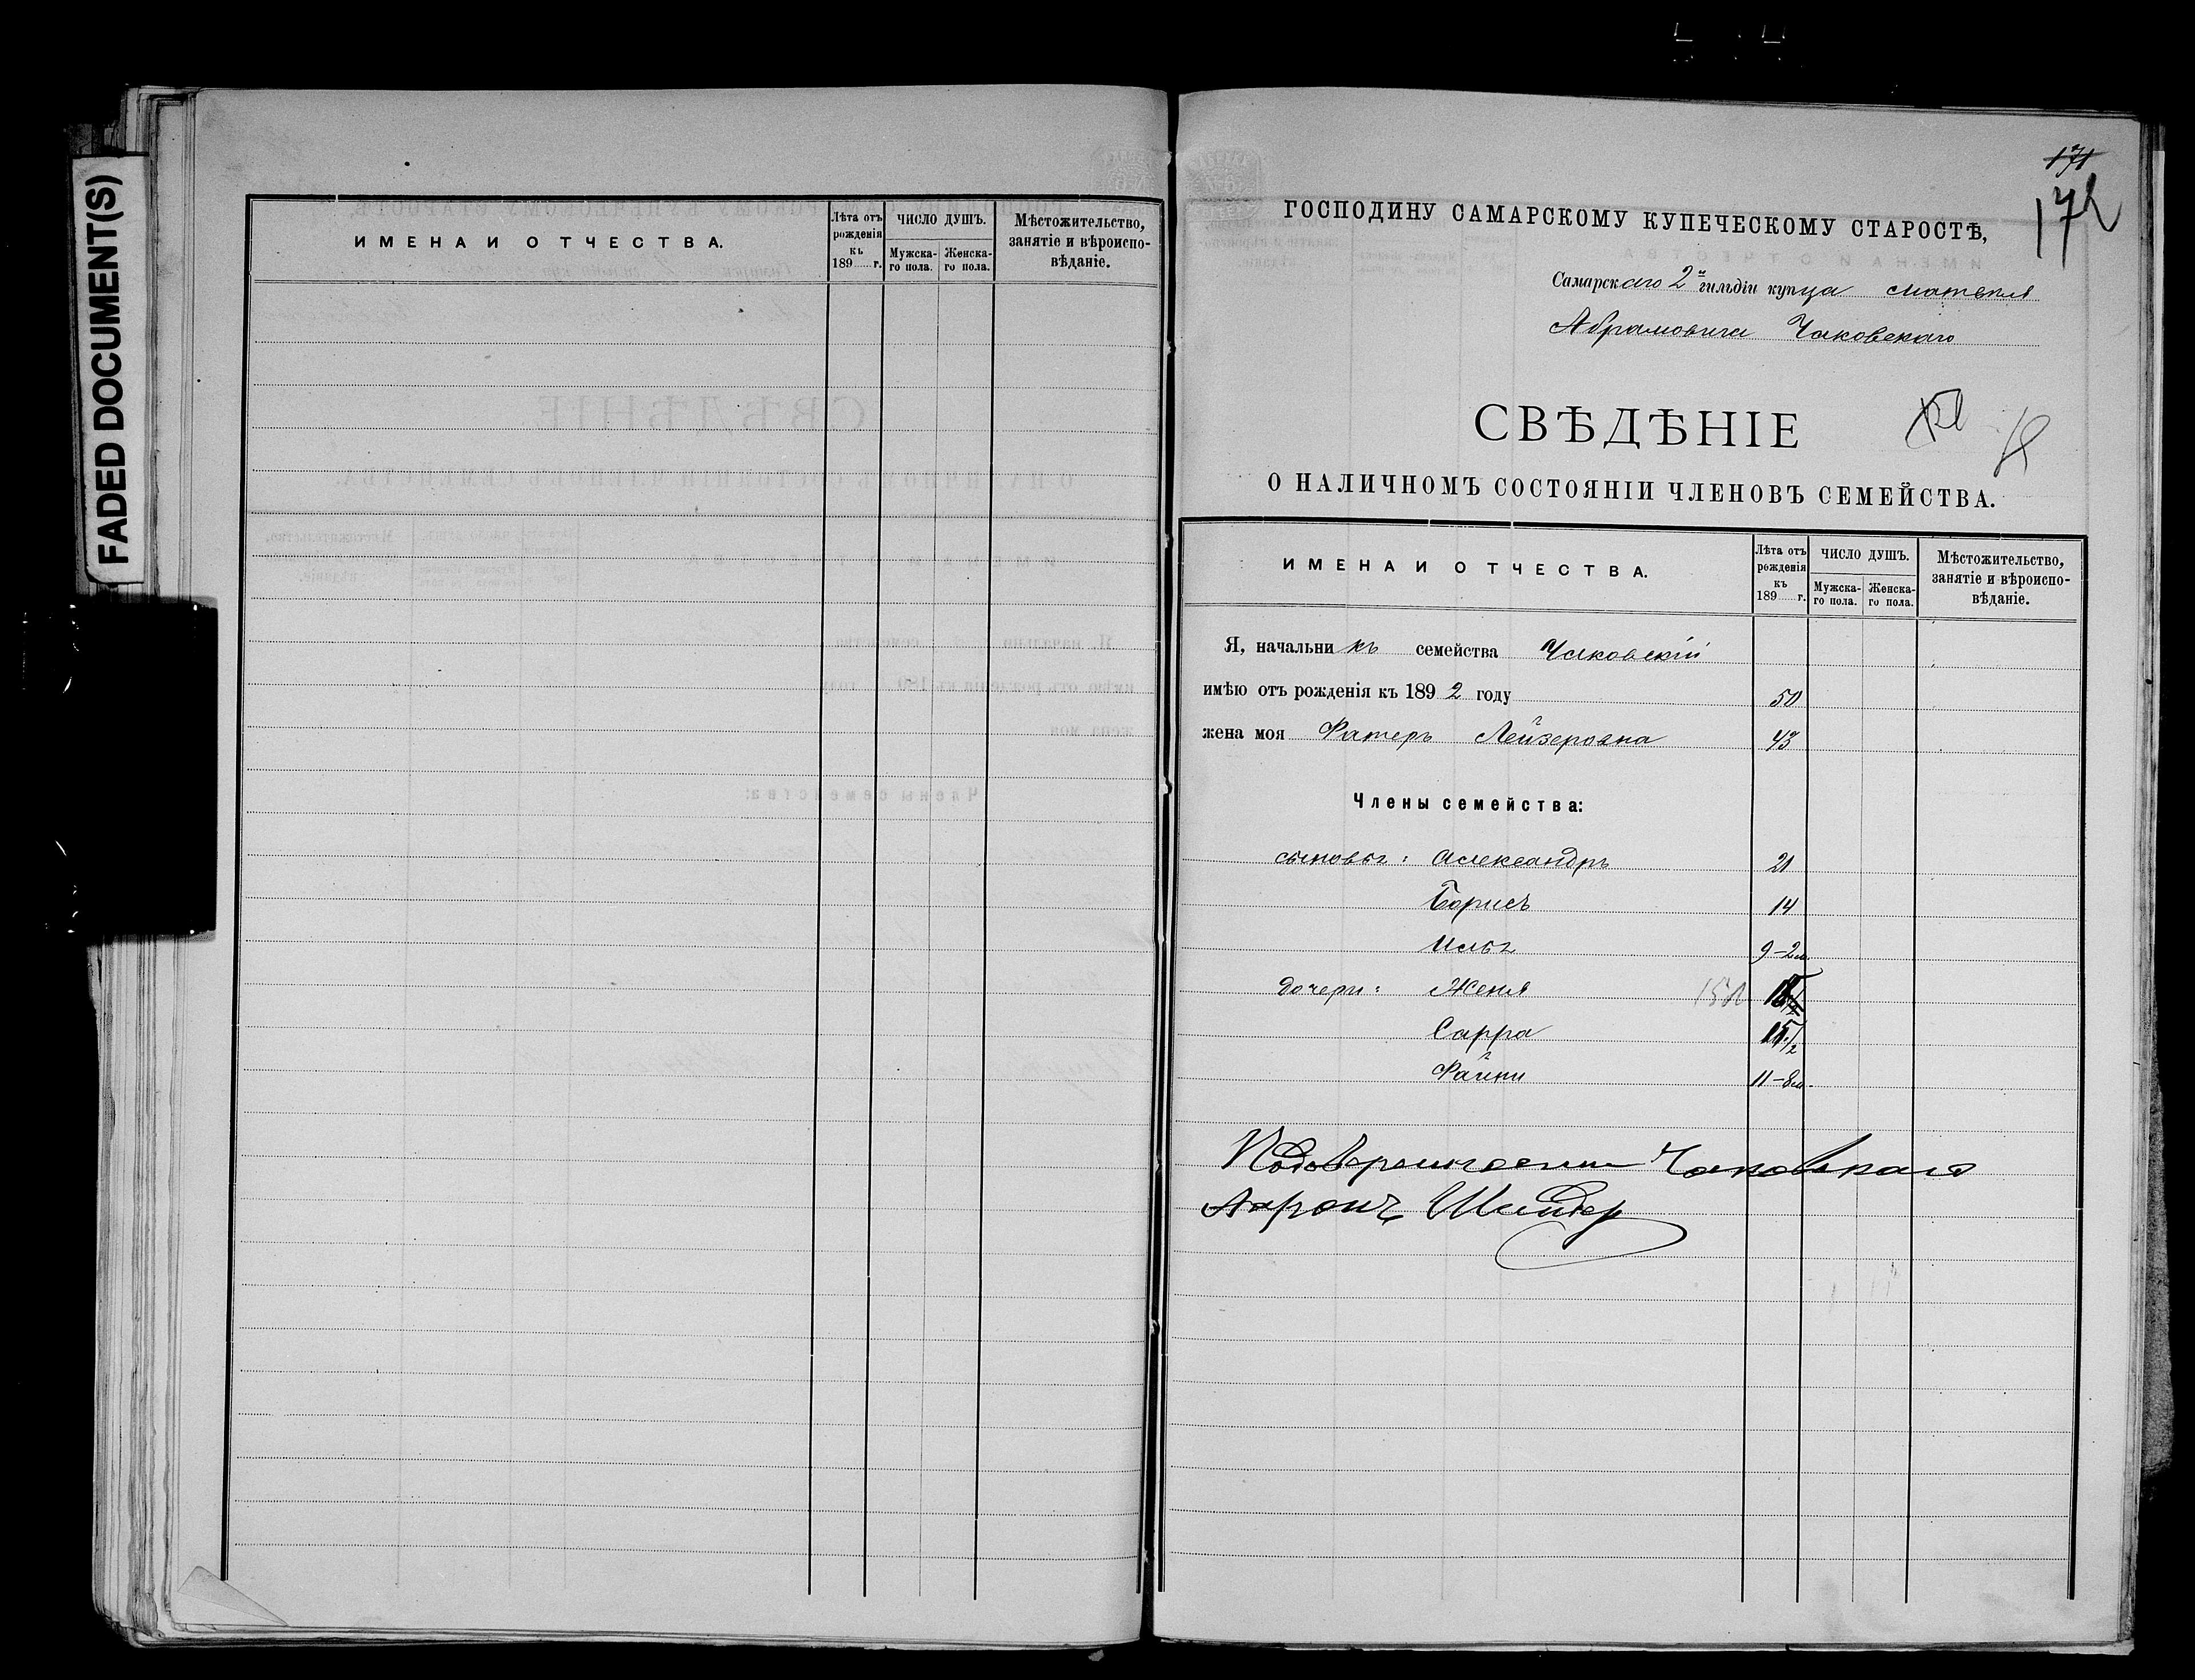 FADED DOCUMENT(S)
ИМЕНА И ОТЧЕСТВА.
Лѣта отъ рожденія къ 189 г.
ЧИСЛО ДУШЪ.
Мужска-го пола.
Женска-го пола.
Мѣстожительство, занятіе и вѣроиспо-вѣданіе.
171
172
ГОСПОДИНУ САМАРСКОМУ КУПЕЧЕСКОМУ СТАРОСТѢ,
Самарскаго 2й гильдіи купца Матвея
Абрамовича Чаковскаго
СВѢДѢНІЕ
О НАЛИЧНОМЪ СОСТОЯНІИ ЧЛЕНОВЪ СЕМЕЙСТВА.
ИМЕНА И ОТЧЕСТВА.
Лѣта отъ рожденія къ 189 г.
ЧИСЛО ДУШЪ.
Мужска-го пола.
Женска-го пола.
Мѣстожительство, занятіе и вѣроиспо-вѣданіе.
Я, начальникъ семейства Чаковскій
имѣю отъ рожденія къ 1892 году 50
жена моя Фатеръ Лейзеровна 43
Члены семейства:
сыновья: Александръ 21
Борисъ 14
Илья 9-2м.
дочери: Женя
Сарра 15 1/2
Файни 11-8м.
Чаковскаго
Ааронъ